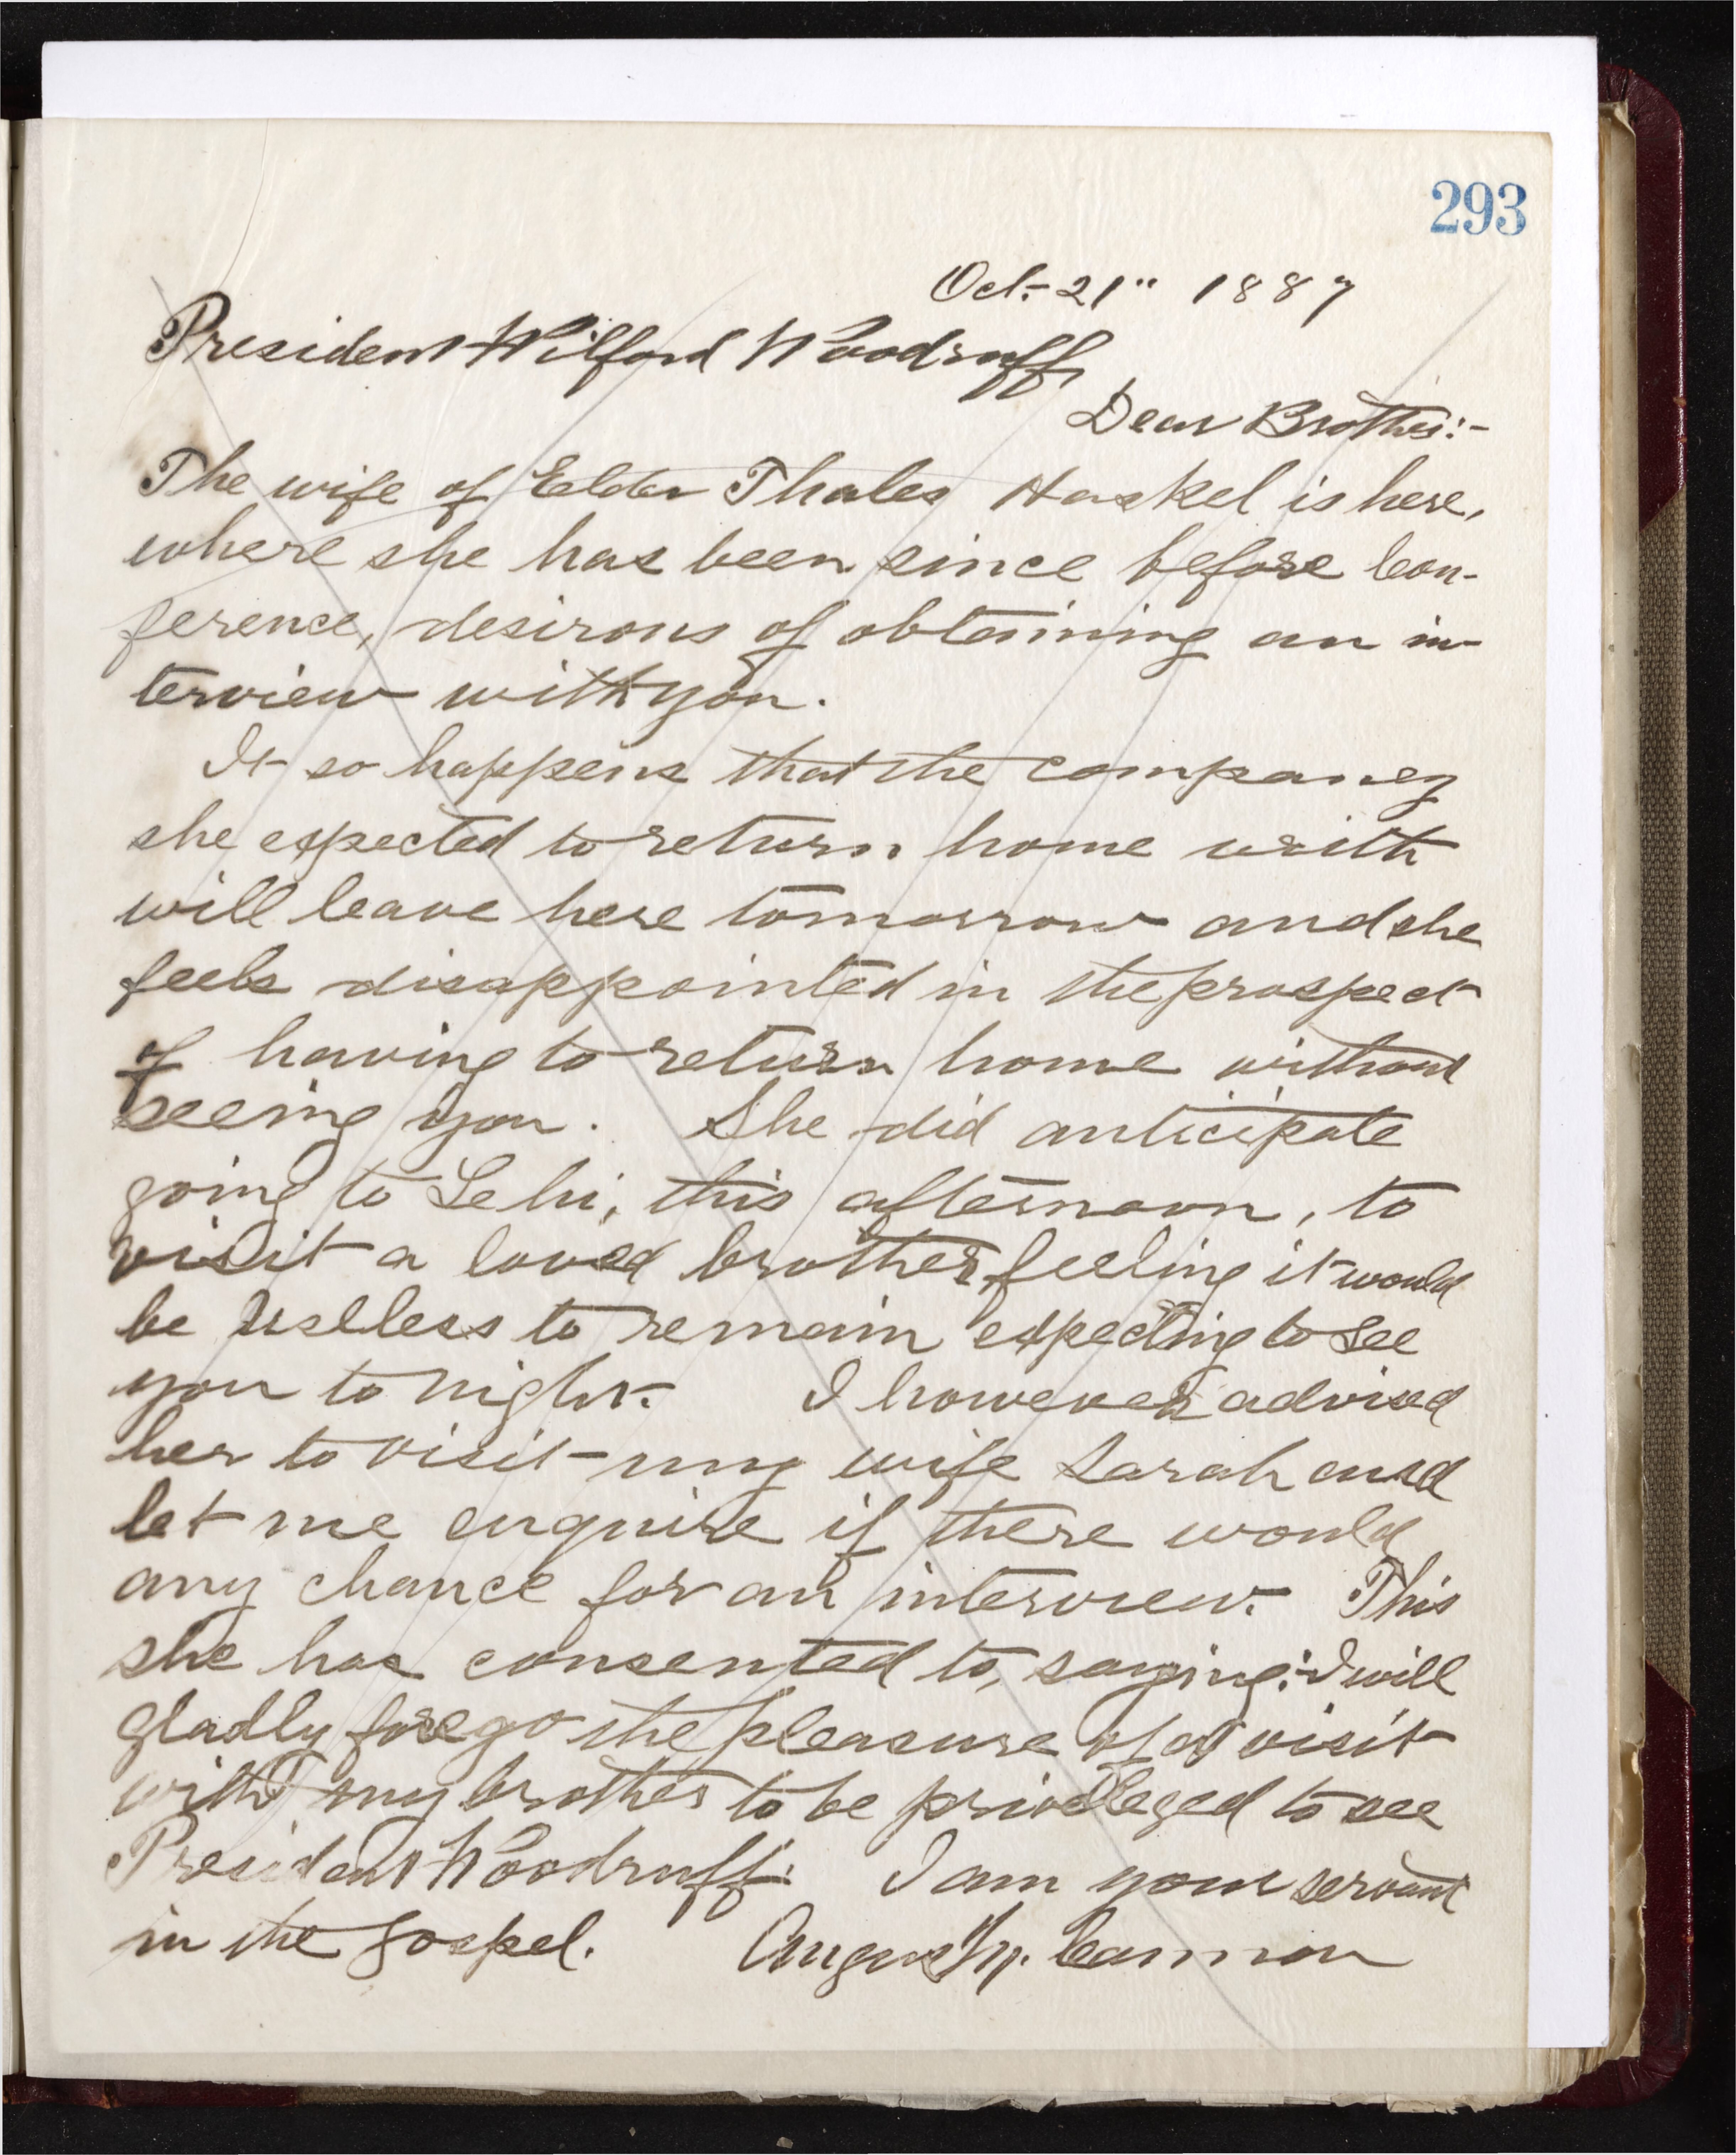 293
Oct. 21" 1887
President Wilford Woodruff
Dear Brother:-
The wife of Elder Thales Haskel is here,
where she has been since before Con-
ference, desirous of obtaining an in-
terview with you.
It so happens that the company
she expected to return home with
will leave here tomorrow and she
feels disappointed in the prospect
of having to return home without
seeing you. She did anticipate
going to Lehi, this afternoon, to
visit a loved brother, feeling it would
be useless to remain expecting to see
you to night. I however advised
her to visit my wife Sarah and
let me enquire if there would
any chance for an interview. This
she has consented to, saying: I will
gladly forego the pleasure of a visit
with my brother to be privileged to see
President Woodruff. I am your servant
in the gospel. Angus M. Cannon